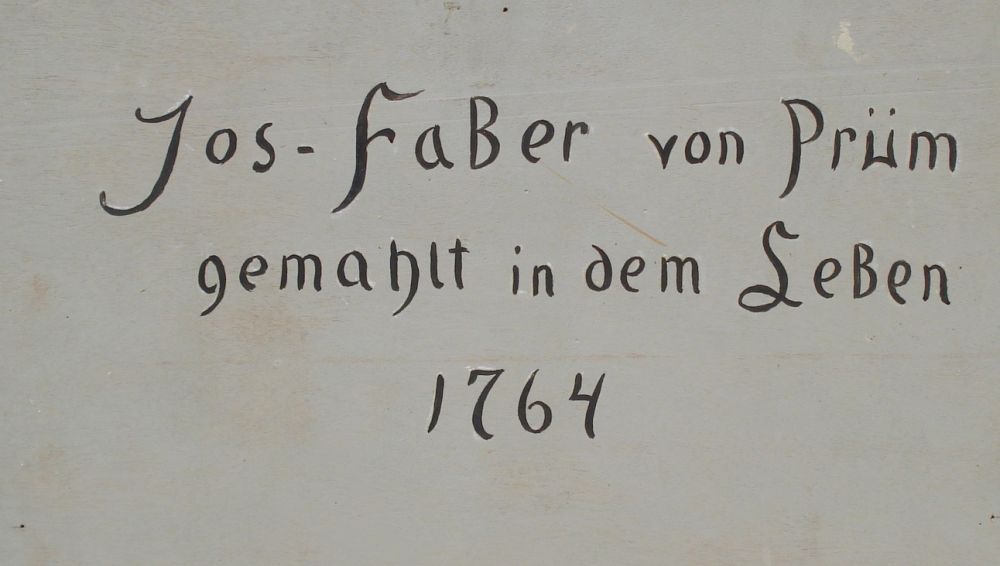 Jos- FaBer von Prüm
gemahlt in dem LeBen
1764